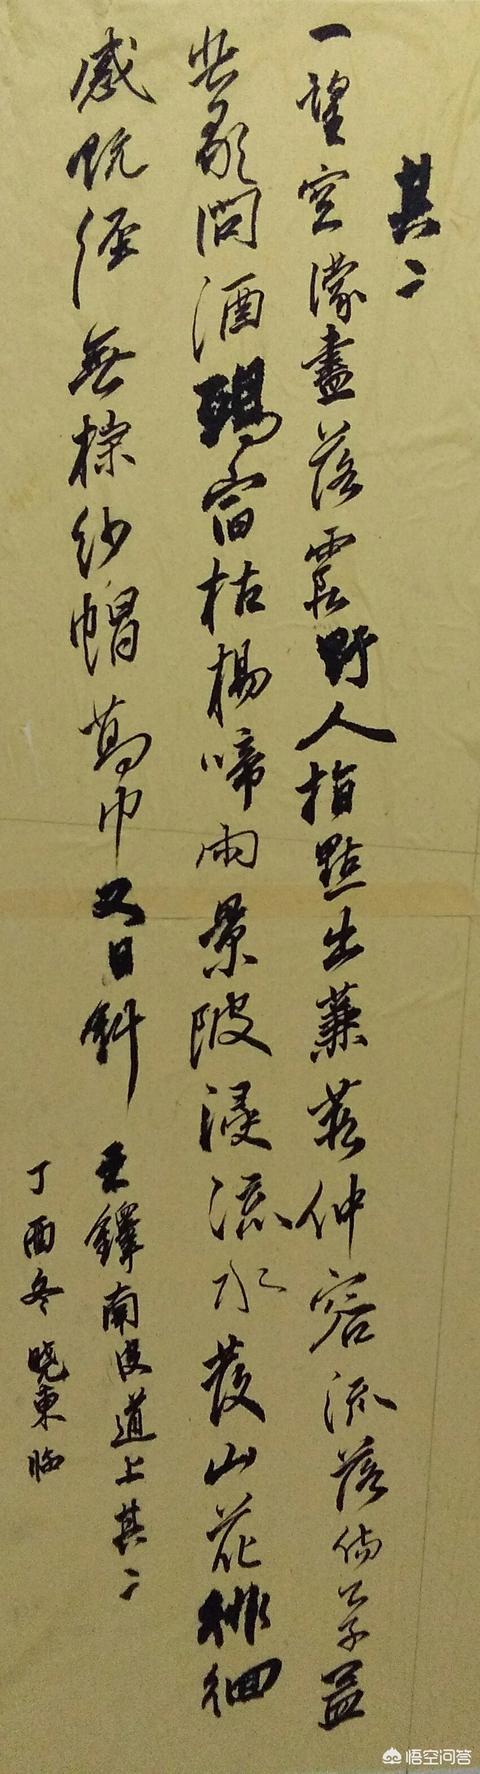 其二
一望空濛盡落霞野人指點出蒹葭仲容流落益
問酒枯楊啼雨景陂浸流水發山花徘徊
感經無紗帽葛巾又日斜
王鐸南皮道上其二
丁酉冬曉東臨
悟空问答